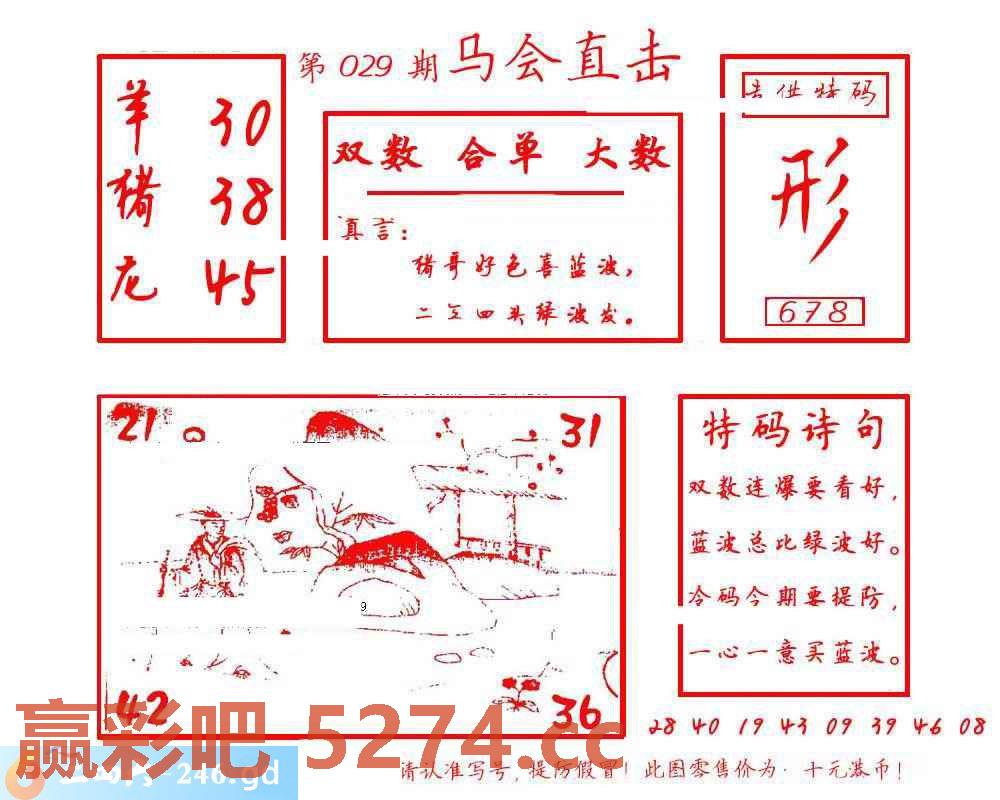 第 029 期 马会直击
羊 30
猪 38
龙 45
双数 合单 大数
真言：
猪哥好色喜蓝波，
二 四头绿波发。
供特码
形
678
21
31
9
42
36
特码诗句
双数连爆要看好，
蓝波总比绿波好。
冷码今期要提防，
一心一意买蓝波。
28 40 19 43 09 39 46 08
赢彩吧 5274.cc
-246.gd
请认准写号，提防假冒！此图零售价为·十元港币！